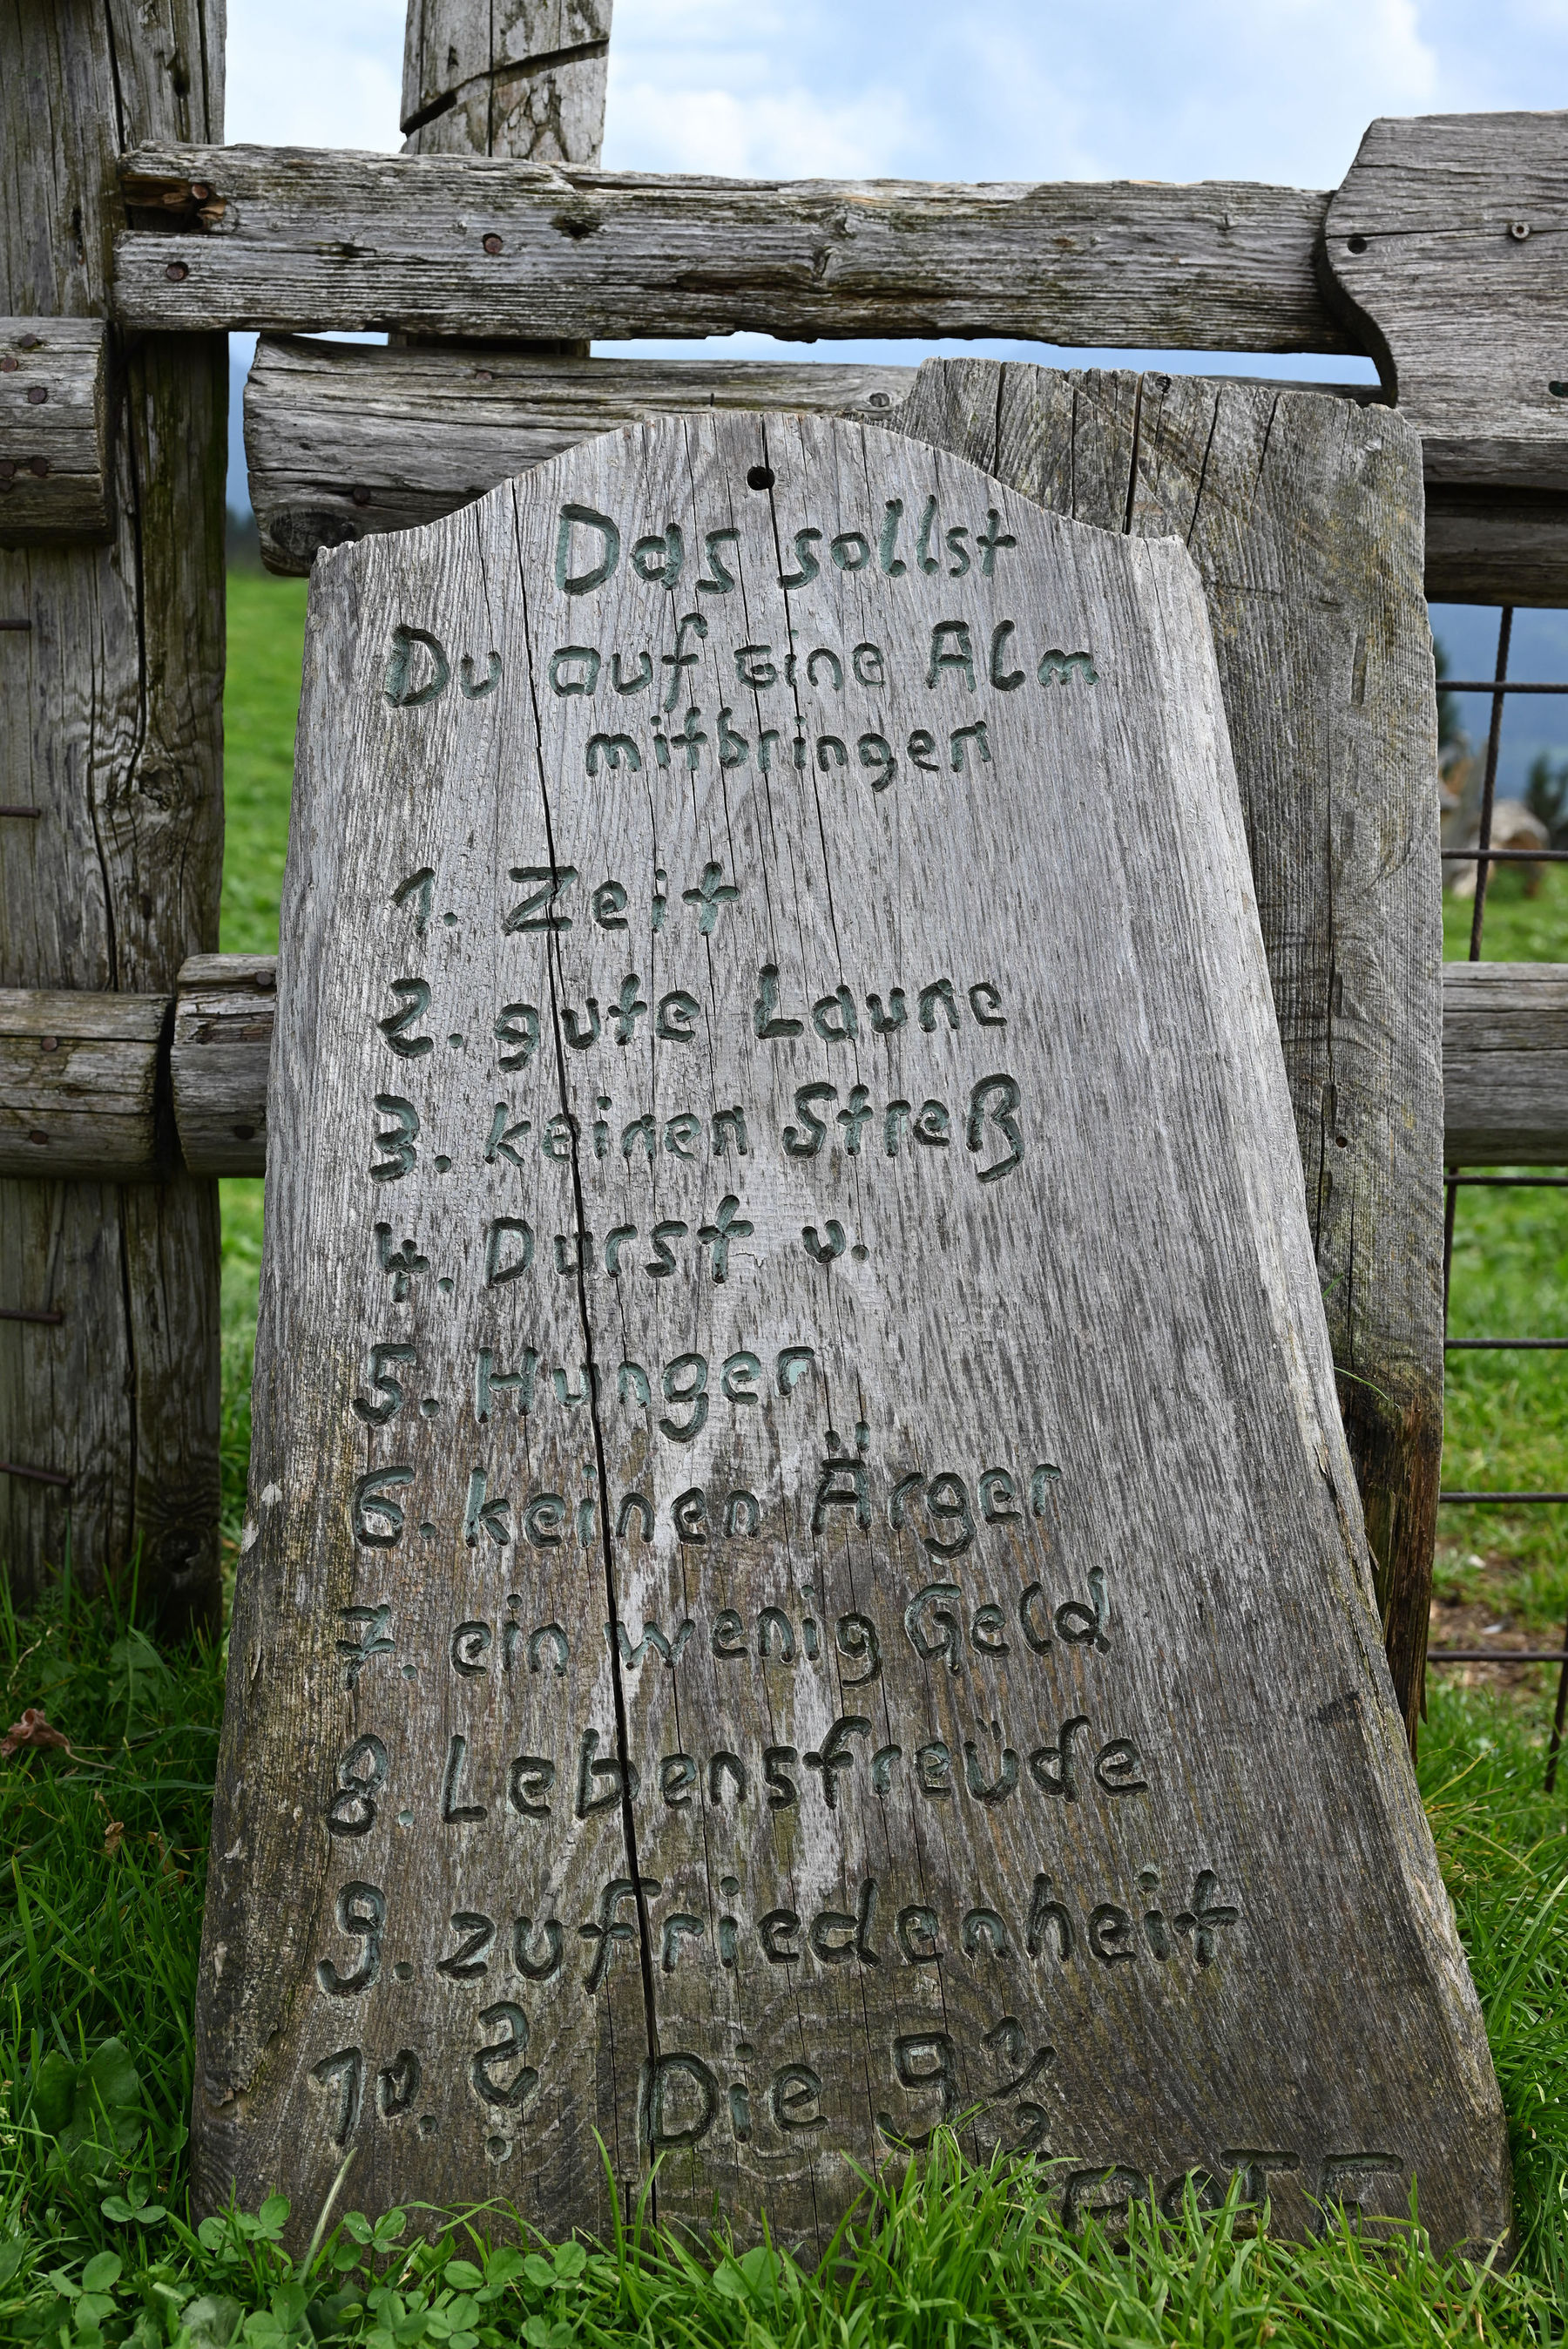 Das sollst
Du auf eine Alm
mitbringen
1. Zeit
2. gute Laune
3. keinen Streß
4. Durst u.
5. Hunger
6. keinen Ärger
7. ein wenig Geld
8. Lebensfreüde
9. zufriedenheit
10. ? Die 9 1/2